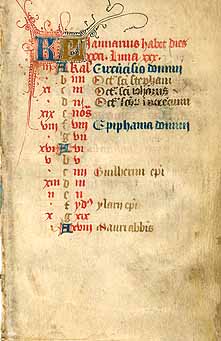 KL Januarius habet dies
xxxi. Luna xxx.
A Kal Circũcisio domini
b iiii Oct' sci stephani
xi c iii Oct' sci iohannis
d ii Oct' scõr innocentũ
xix e nõs
viii f viii Epiphania domini
g vii
xvi A vi
v b v
c iiii Guillermi epi
xiii d iii
ii e ii
f ydꝰ ylarii epi
x g xix
A xviii Mauri abbis